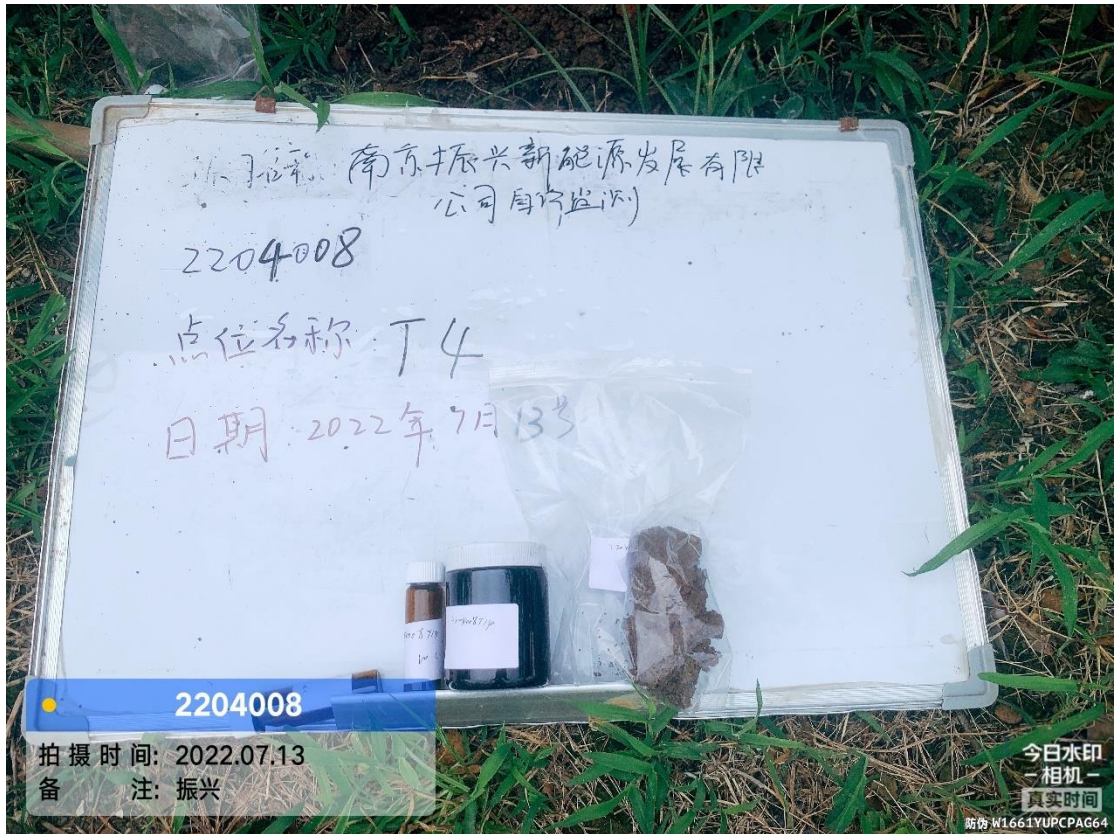 南京振兴新能源发展有限
公司自行监测
2204008
点位名称:T4
日期:2022年7月13号
2204008
拍摄时间: 2022.07.13
备注: 振兴
今日水印
相机
真实时间
防伪 W1661YUPCPAG64